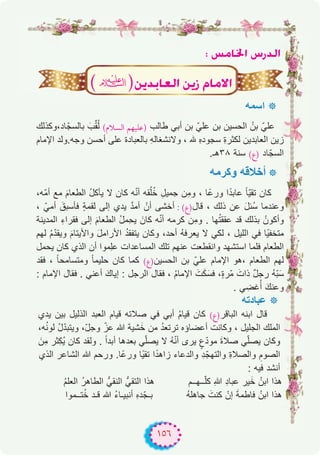 الدرس الخامس :
الامام زين العابدين (عليه السلام)
* اسمه
عليّ بنُ الحسين بن عليّ بن أبي طالب (عليهم السلام) لُقِّبَ بالسجّاد،وكذلك
زين العابدين لكثرةِ سجودهِ لله ، ولانشغالهِ بالعبادة على أحسن وجه.ولد الإمام
السجّاد (ع) سنة ٣٨هـ.
* أخلاقه وكرمه
كان تقيّاً عابدًا ورعًا ، ومِن جميلِ خُلُقِه أنّه كان لا يأكلُ الطعامَ مع أمّه،
وعندما سُئلَ عن ذلك ، قال(ع) : أخشى أنْ أمدَّ يدي إلى لقمةٍ فأسبقَ أمّي ،
وأكونُ بذلك قد عققتُها . ومن كرمه أنّه كان يحملُ الطعامَ إلى فقراءِ المدينة
متخفّيًا في الليل ، لكي لا يعرفهُ أحد، وكان يتفقدُ الأراملَ والأيتامَ ويقدّمُ لهم
الطعام فلما استشهد وانقطعت عنهم تلك المساعدات علِموا أن الذي كان يحمل
لهم الطعام ،هو الإمام عليّ بن الحسين(ع) كما كان حليماً ومتسامحاً ، فقد
سَبَّهُ رجلٌ ذاتَ مرّةٍ، فسكتَ الإمامُ ، فقال الرجل : إياكَ أعني . فقال الإمام :
وعنكَ أُغضي .
* عبادته
قال ابنه الباقر(ع) كان قيامُ أبي في صلاته قيام العبد الذليل بين يدي
الملك الجليل ، وكانت أعضاؤه ترتعدُ من خشية الله عزّ وجلّ، ويتبدّلُ لونُه،
وكان يصلّي صلاةَ مودّعٍ من يرى أنّهُ لا يصلّي بعدها أبداً . ولقد كان يُكثِر مِنَ
الصوم والصلاةِ والتهجّد والدعاء زاهدًا تقيًّا ورعًا. ورحم الله الشاعر الذي
أنشد فيه :
هذا ابنُ خيرِ عبادِ اللهِ كلّـهـم هذا التقيُّ النقيُّ الطاهرُ العلمُ
هذا ابنُ فاطمةٍ إنْ كنتَ جاهلَهُ بـجَـدّهِ أنبيـاءُ الله قـد خُتـموا
١٥٦